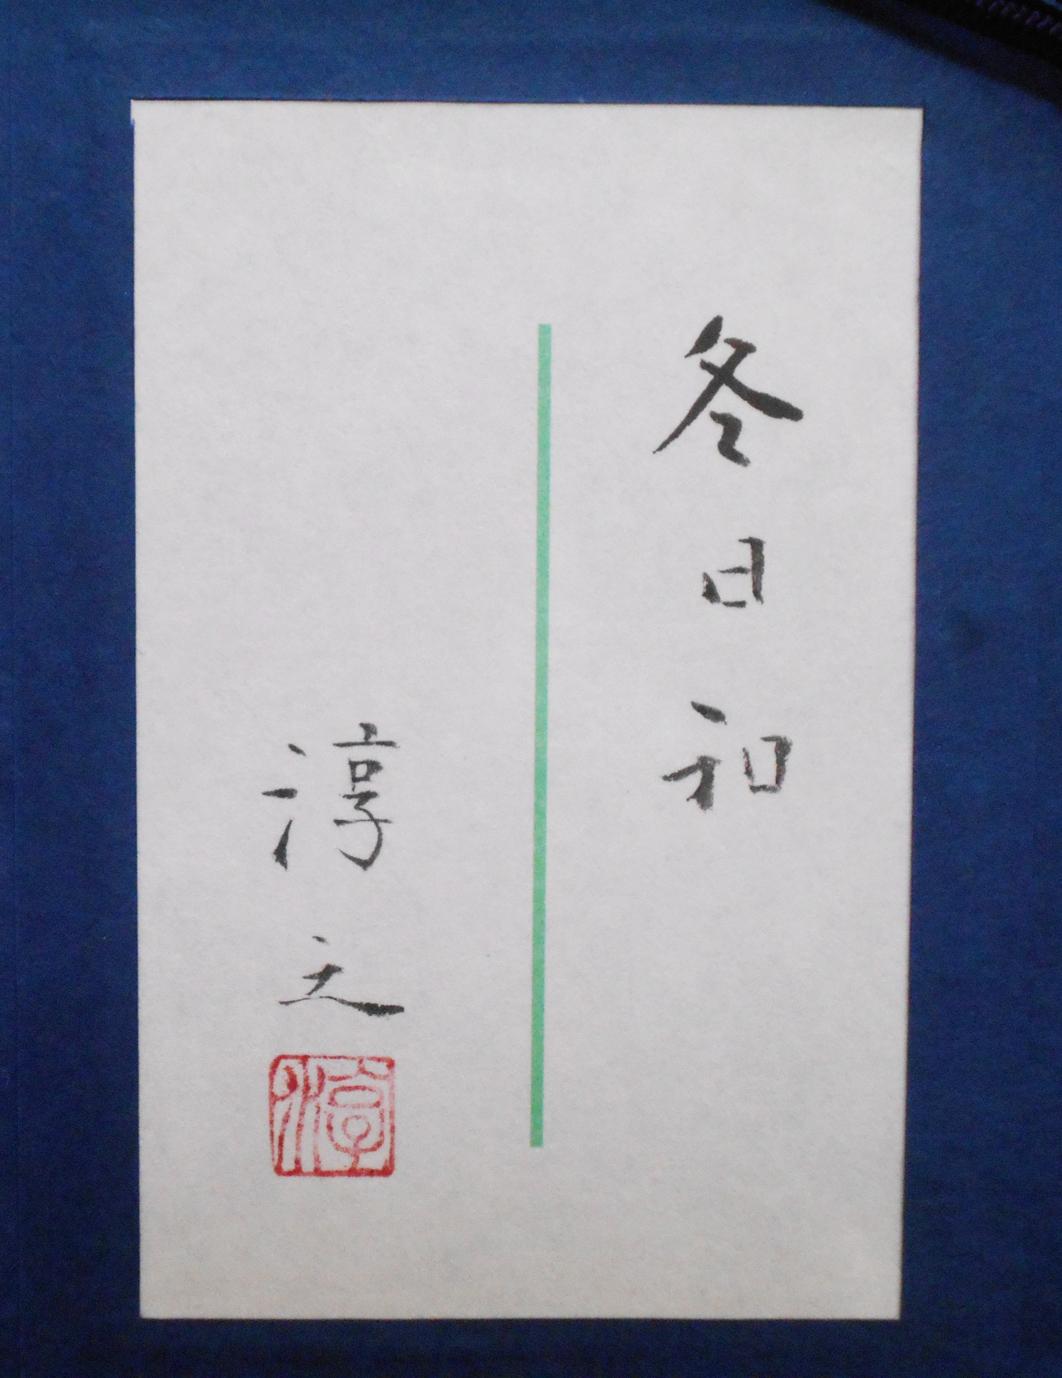 冬日和
淳之
淳